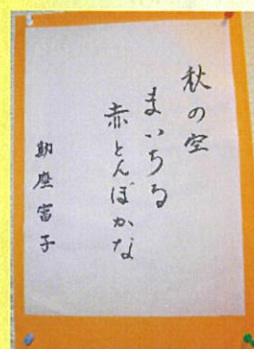 秋の空
まいちる
赤とんぼかな
勅座富子